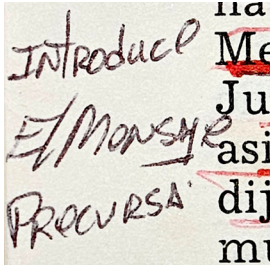 Introduce
El Monsaje
Precursa
na
Me
Ju
asi
dij
mu